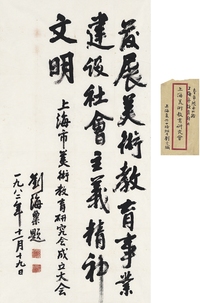 發展美術教育事業
建设社會主義精神
文明
上海市美術教育研究会成立大会
劉海粟題
一九八二年十二月十九日
上海美術教育研究會